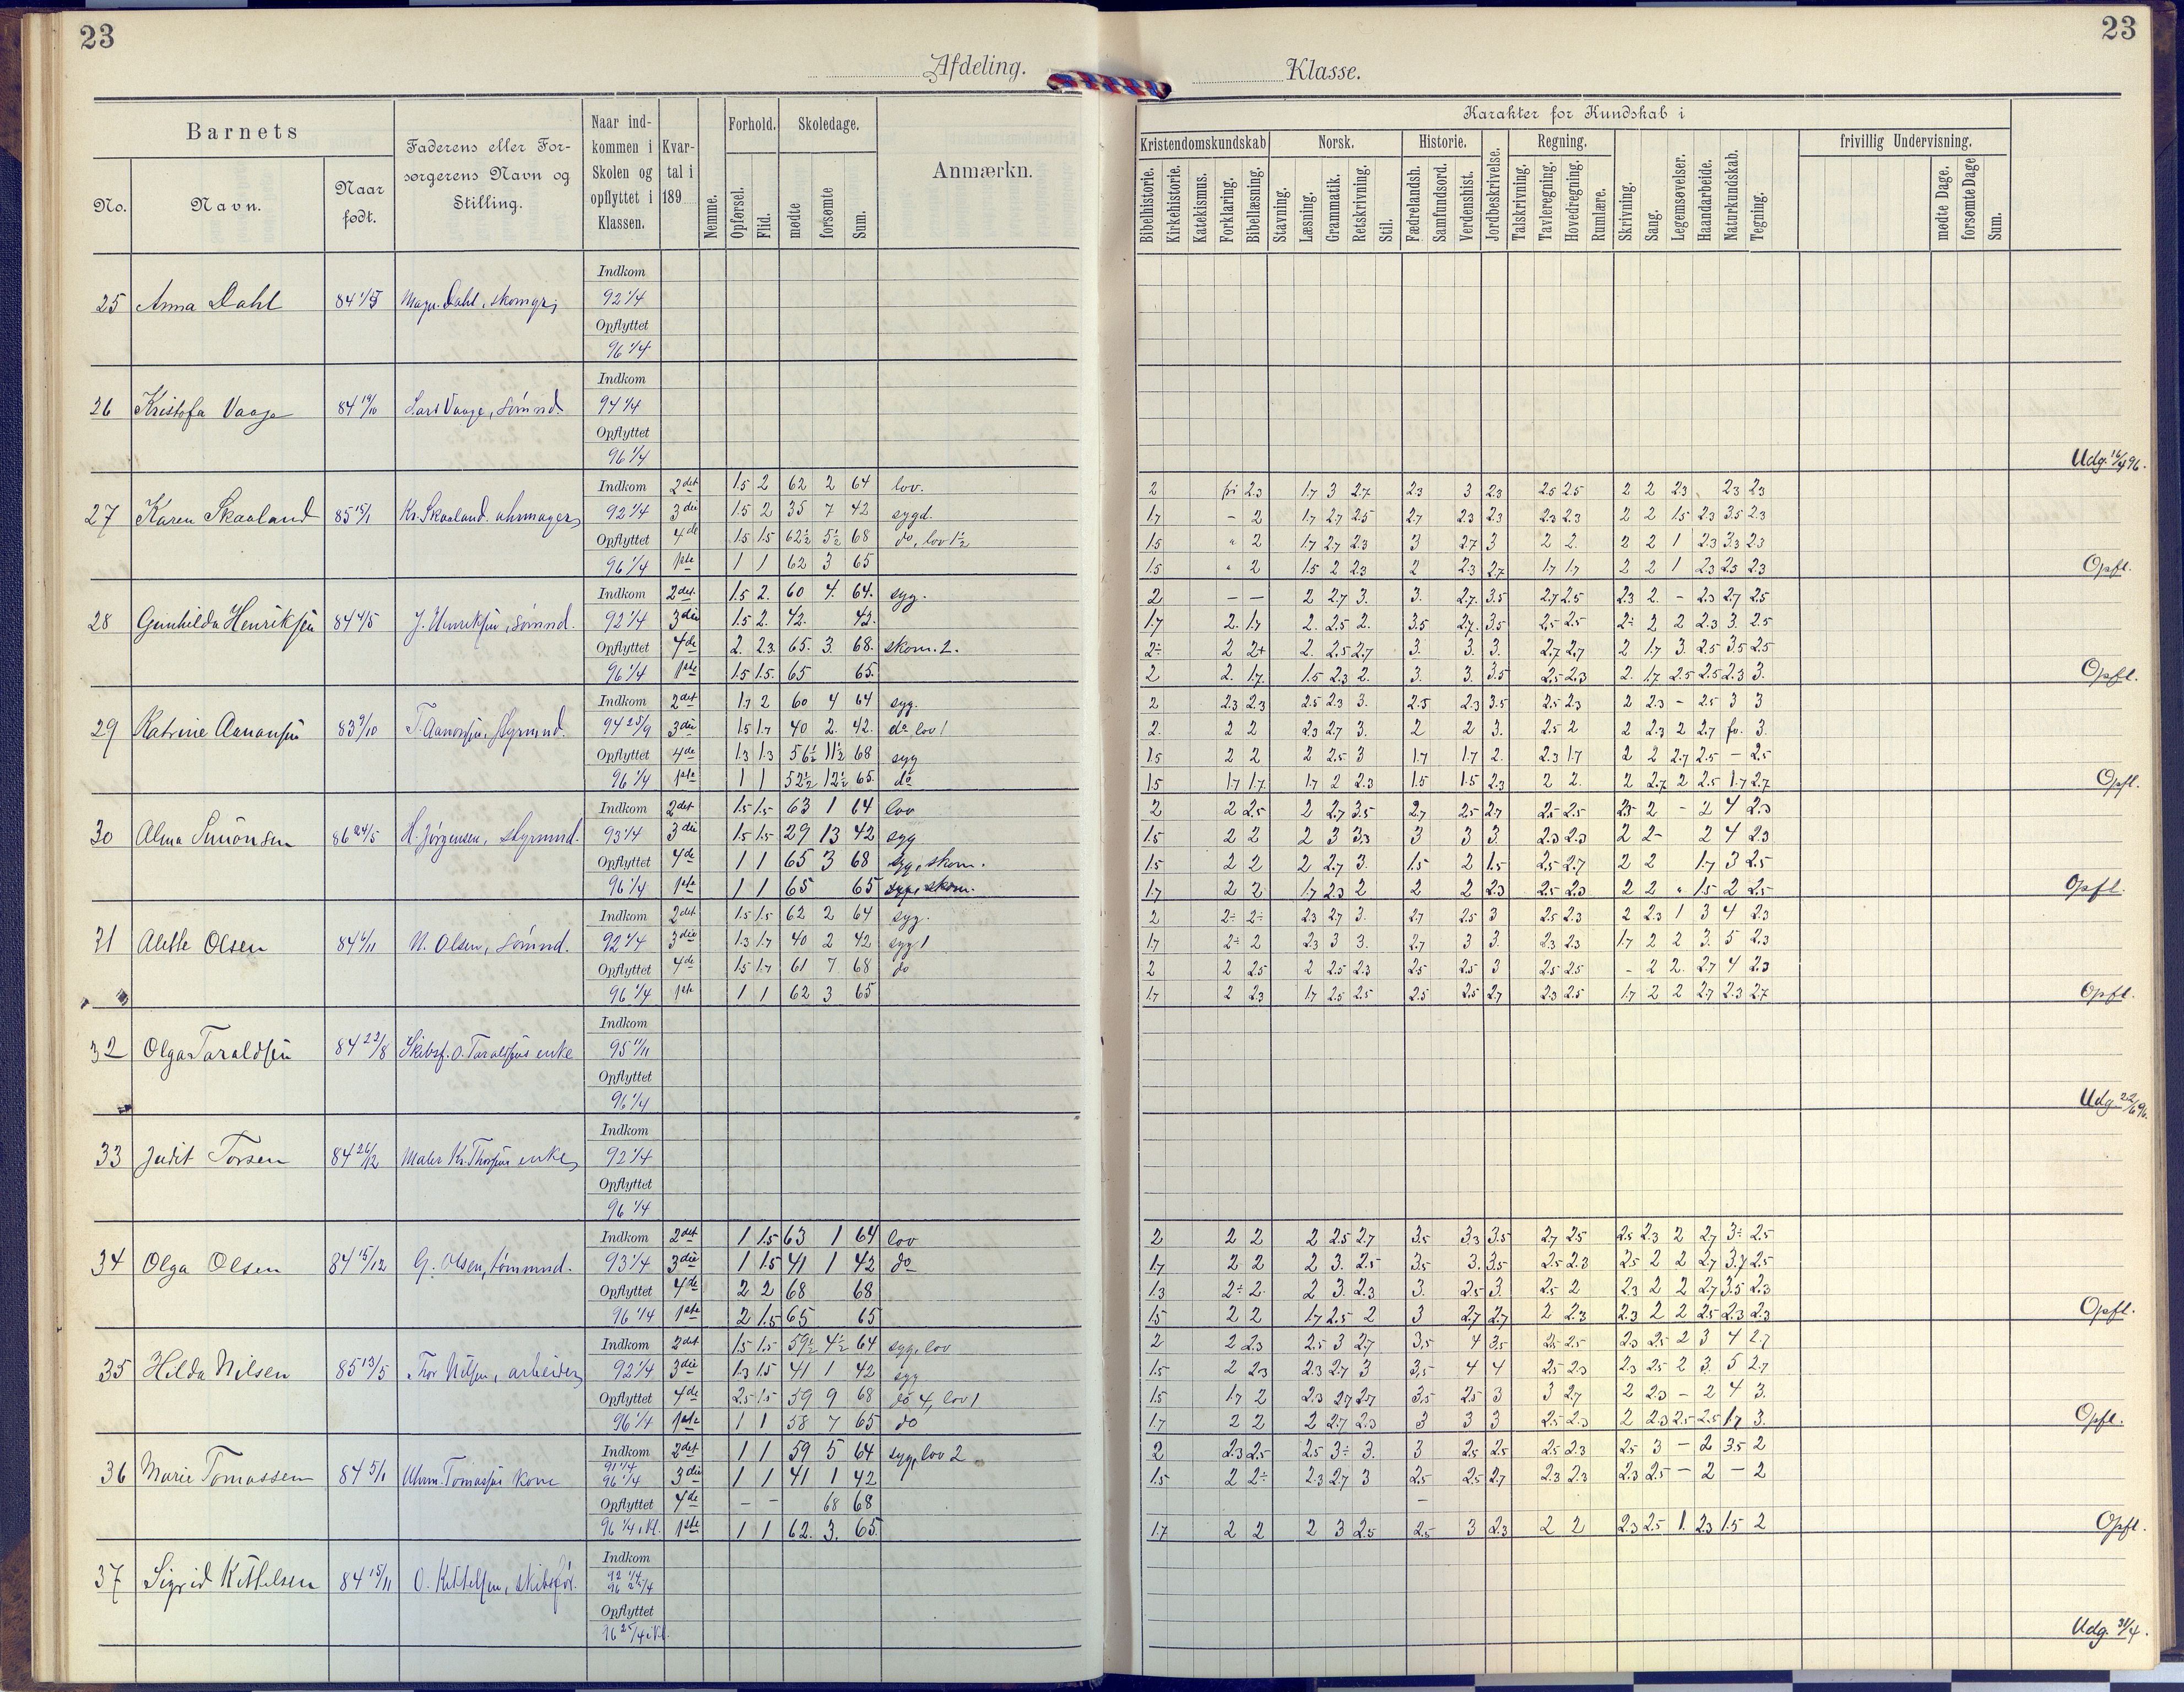 23
23
Afdeling.
Klasse.
Barnets
No.
Navn.
Naar født.
Faderens eller Forsorgerens Navn og Stilling.
Naar indkommen i Skolen og opflyttet i Klassen.
Kvartal i 189
Nemme.
Forhold.
Opførsel.
Flid.
Skoledage.
mødte
forsømte
Sum.
Anmærkn.
Karakter for Kundskab i
Kristendomskundskab
Bibelhistorie.
Kirkehistorie.
Katekismus.
Forklaring.
Bibellæsning.
Norsk.
Stavning.
Læsning.
Grammatik.
Retskrivning.
Stil.
Historie.
Fædrelandsh.
Samfundsord.
Verdenshist.
Jordbeskrivelse.
Regning.
Talskrivning.
Tavleregning.
Hovedregning.
Rumlære.
Skrivning.
Sang.
Legemsøvelser.
Haandarbeide.
Naturkundskab.
Tegning.
frivillig Undervisning.
mødte Dage.
forsømte Dage
Sum.
25 Anna Dahl Dahl, Indkom 92 1/4 Opflyttet 96 1/4
26 Kristofa Vaage 84 19/10 Lars Vaage, sømnd. Indkom 94 1/4 Opflyttet 96 1/4 Udg. 16/4 96.
27 Karen Skaaland 85 15/1 Kr. Skaaland. uhrmager
Indkom 2det 1.5 2 62 2 64 lov. 2 fri 2.3 1.7 3 2.7 2.3 3 2.3 2.5 2.5 2 2 2.3 2.3 2.3
92 1/4 3die 1.5 2 35 7 42 sygd. 1.7 - 2 1.7 2.7 2.5 2.7 2.3 2.3 2.3 2.3 2 2 1.5 2.3 3.5 2.3
Opflyttet 4de 1.5 1.5 62½ 5½ 68 do, lov 1½ 1.5 " 2 1.7 2.7 2.3 3 2.7 3 2 2. 2 2 1 2.3 3.3 2.3
96 1/4 1ste 1 1 62 3 65 1.5 " 2 1.5 2 2.3 2 2.3 2.7 1.7 1.7 2 2 1 2.3 2.5 2.3 Opfl.
28 Gunhilda Henriksen 84 4/5 J. Henriksen, sømnd.
Indkom 2det. 1.5 2. 60 4. 64. syg. 2 - - 2 2.7 3. 3. 2.7. 3.5 2.7 2.5 2.3 2. - 2.3 2.7 2.5
92 1/4 3die 1.5 2. 42. 42. 1.7 2. 1.7 2. 2.5 2. 3.5 2.7. 3.5 2.5 2.5 2÷ 2 2 2.3 3. 2.5
Opflyttet 4de 2. 2.3. 65. 3. 68. skom. 2. 2÷ 2 2+ 2. 2.5 2.7 3. 3. 3. 2.7 2.7 2 1.7 3. 2.5 3.5 2.5
96 1/4 1ste 1.5 1.5. 65 65. 2 2. 1.7. 1.5 2.3 2. 3. 3. 3.5 2.5 2.3 2. 1.7. 2.5 2.5 2.3 3. Opfl.
29 Katrine Aanonsen 83 9/10 T. Aanonsen, styrmnd.
Indkom 2det 1.7 2 60 4 64 syg. 2 2.3 2.3 2.5 2.3 3. 2.5 2.3 3.5 2.5 2.3 2 2.3 - 2.5 3 3
94 25/9 3die 1.5 1.7 40 2. 42. do lov 1 2. 2 2 2.3 2.7 3. 2 2 3. 2.5 2 2 2.3 2 2.7 fr. 3.
Opflyttet 4de 1.3 1.3 56½ 11½ 68 syg 1.5 2 2 2 2.5 3 1.7 1.7 2. 2.3 1.7 2 2 2.7 2.5 - 2.5
96 1/4 1ste 1 1 52½ 12½ 65 do 1.5 1.7 1.7 1.7 2 2.3 1.5 1.5 2.3 2 2. 2 2.7 2 2.5 1.7 2.7 Opfl.
30 Alma Simonsen 86 24/5 H. Jørgensen, styrmnd.
Indkom 2det 1.5 1.5 63 1 64 lov 2 2 2.5 2 2.7 3.5 2.7 2.5 2.7 2.5 2.5 2.5 2 - 2 4 2.3
93 1/4 3die 1.5 1.5 29 13 42 syg 1.5 2 2 2 3 3.3 3 3 3. 2.3 2.3 2 2- 2 4 2.3
Opflyttet 4de 1 1 65 3 68 syg, skom. 1.5 2 2 2 2.7 3. 1.5 2 1.5 2.5 2.7 2 2 1.7 3 2.5
96 1/4 1ste 1 1 65 65 1.7 2 2 1.7 2.3 2 2 2 2.3 2.5 2.3 2 2 " 1.5 2 2.5 Opfl.
31 Alette Olsen 84 6/11 N. Olsen, sømnd.
Indkom 2det 1.5 1.5 62 2 64 syg. 2 2÷ 2÷ 2.3 2.7 3. 2.7 2.5 3 2.5 2.3 2 2.3 1 3 4 2.3
92 1/4 3die 1.3 1.7 40 2 42 syg 1 1.7 2÷ 2 2.3 3 3. 2.7 3 3. 2.3 2.3 1.7 2 2 3. 5 2.3
Opflyttet 4de 1.5 1.7 61 7 68 do 2 2 2.5 2 2.5 2.3 2.5 2.5 3 2.5 2.5 - 2 2. 2.7 4 2.3
96 1/4 1ste 1 1 62 3 65 1.7 2 2.3 1.7 2.5 2.5 2.5 2.5 2.7 2.3 2.5 1.7 2 2 2.7 2.3 2.7 Opfl.
32 Olga Taraldsen 84 22/8 Skibsf. O. Taraldsens enke Indkom 95 11/11 Opflyttet 96 1/4 Udg. 22/6 96.
33 Judit Torsen 84 26/12 Maler Kr. Thorsens enke Indkom 92 1/4 Opflyttet 96 1/4
34 Olga Olsen 84 15/12 G. Olsen, tømmmd.
Indkom 2det 1 1.5 63 1 64 lov 2 2 2 2 2.5 2.7 3.5 3.3 3.5 2.7 2.5 2.5 2.3 2 2.7 3÷ 2.5
93 1/4 3die 1 1.5 41 1 42 do 1.7 2 2 2 3. 2.5 3.5 3. 3.5 2.5 2.3 2.5 2 2 2.7 3.7 2.5
Opflyttet 4de 2 2 68 68 1.3 2÷ 2. 2 3. 2.3 3. 2.5 3. 2.5 2 2.3 2 2 2.7 3.5 2.3
96 1/4 1ste 2 1.5 65 65 1.5 2 2 1.7 2.5 2 3 2.7 2.7 2 2.3 2.3 2 2 2.5 2.3 2.3 Opfl.
35 Hilda Nilsen 85 13/5 Thor Nilsen, arbeider
Indkom 2det 1.5 1.5 59½ 4½ 64 syg, lov 2 2 2.3 2.5 3 2.7 3.5 4 3.5 2.5 2.5 2.3 2.5 2 3 4 2.7
92 1/4 3die 1.3 1.5 41 1 42 syg 1.5 2 2.3 2.3 2.7 3 3.5 4 4 2.5 2.3 2.3 2.5 2 3. 5 2.7
Opflyttet 4de 2.5 1.5 59 9 68 do 4, lov 1 1.5 1.7 2 2.3 2.7 2.7 3.5 2.5 3 3 2.7 2 2.3 - 2 4 3.
96 1/4 1ste 1 1 58 7 65 do 1.7 2 2 2 2.7 2.3 3 3 3 2.5 2.3 2 2.3 2.5 2.5 1.7 3. Opfl.
36 Marie Tomassen 84 5/1 Uhrm. Tomassens kone
Indkom 2det 1 1 59 5 64 syg, lov 2 2 2.3 2.5 2.5 3÷ 3. 3 2.5 2.5 2.5 2.3 2.5 3 - 2 3.5 2
91 1/4
96 1/4 3die 1 1 41 1 42 1.5 2 2÷ 2.3 2.7 3 2.5 2.5 2.7 2.3 2.3 2.3 2.5 - 2 - 2
Opflyttet 4de - - 68 68 -
96 1/4 i Kl. 1ste 1 1 62. 3. 65. 1.7 2 2 2 3 2.5 2.5 3 2.3 2 2 2.3 2.5 1. 2.3 1.5 2 Opfl.
37 Sigrid Kittelsen 84 15/11 O. Kittelsen, skibsfør. Indkom 92 1/4 Opflyttet 96 25/4 i Kl. Udg. 31/4.